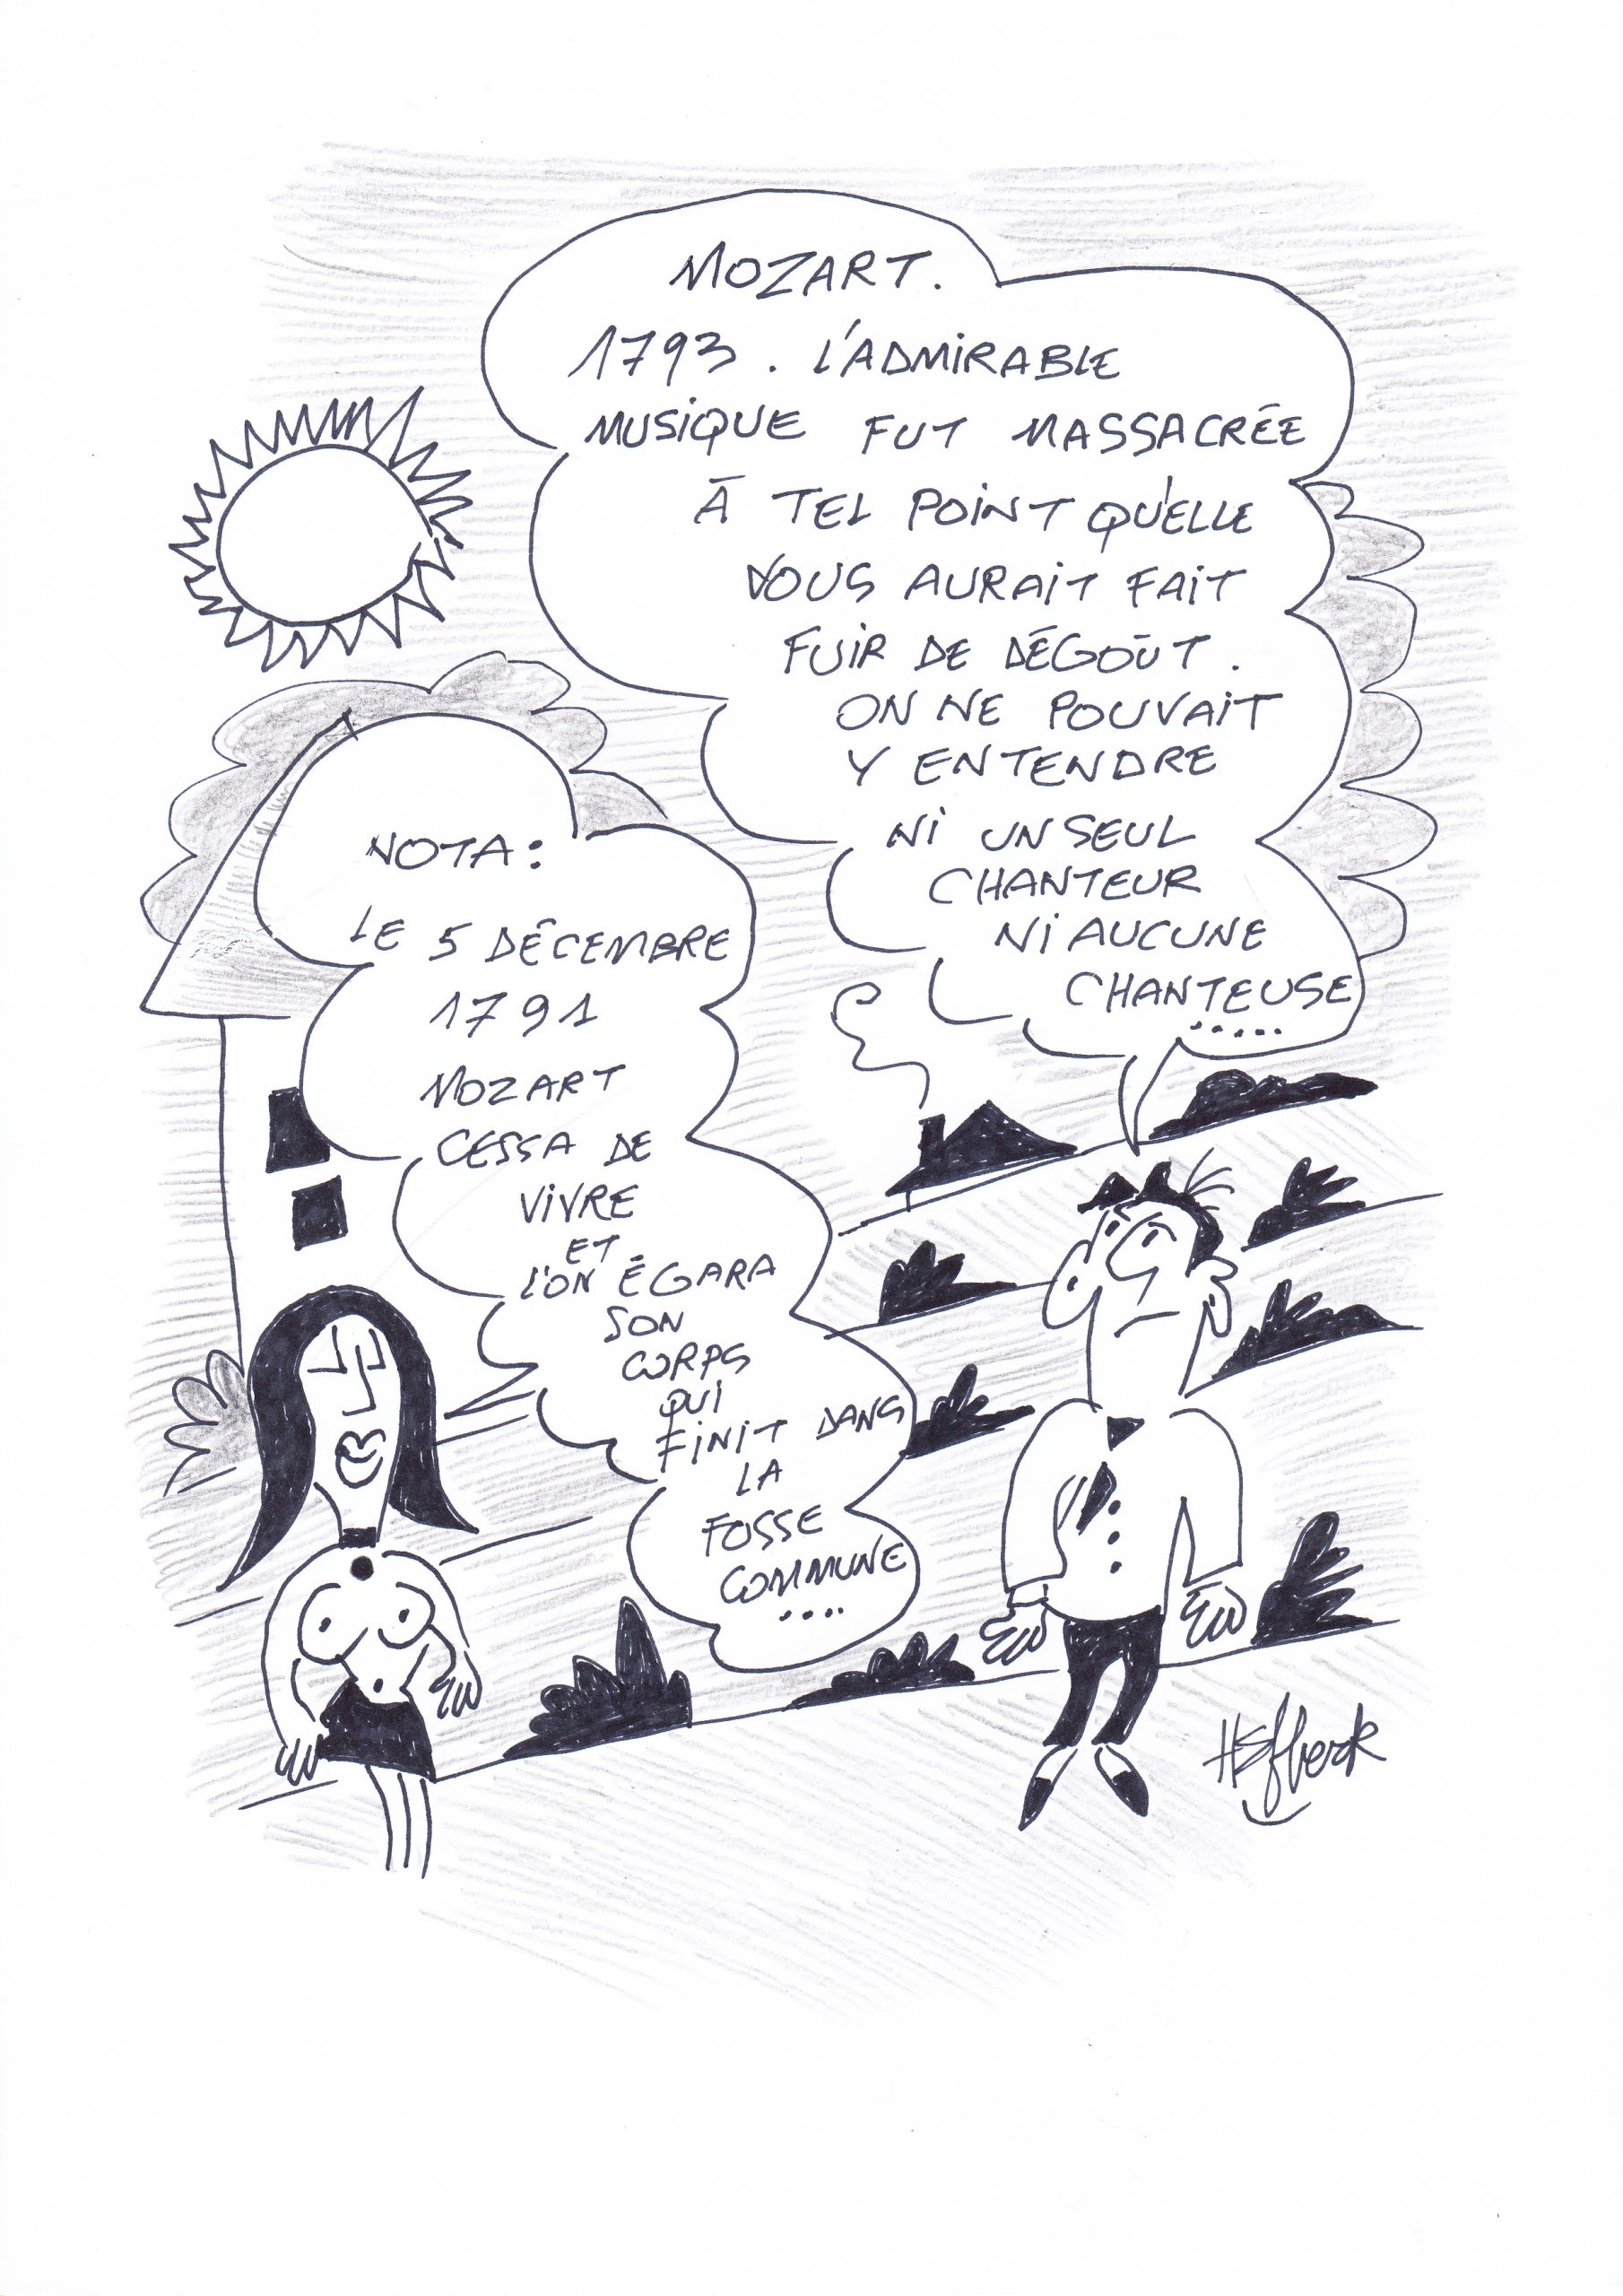 MOZART.
1793. L'ADMIRABLE
MUSIQUE FUT MASSACRÉE
À TEL POINT QU'ELLE
VOUS AURAIT FAIT
FUIR DE DÉGOÛT.
ON NE POUVAIT
Y ENTENDRE
NI UN SEUL
CHANTEUR
NI AUCUNE
CHANTEUSE
.....
NOTA:
LE 5 DÉCEMBRE
1791
MOZART
CESSA DE
VIVRE
ET
L'ON ÉGARA
SON
CORPS
QUI
FINIT DANS
LA
FOSSE
COMMUNE
....